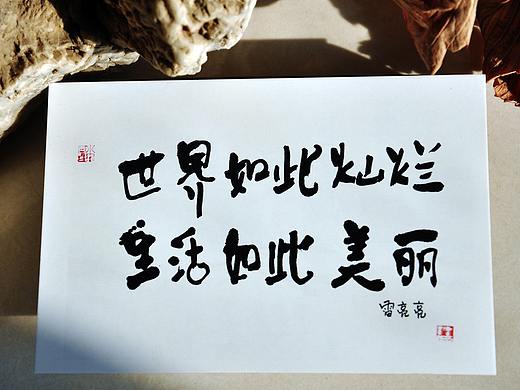 世界如此灿烂
生活如此美丽
雷亮亮